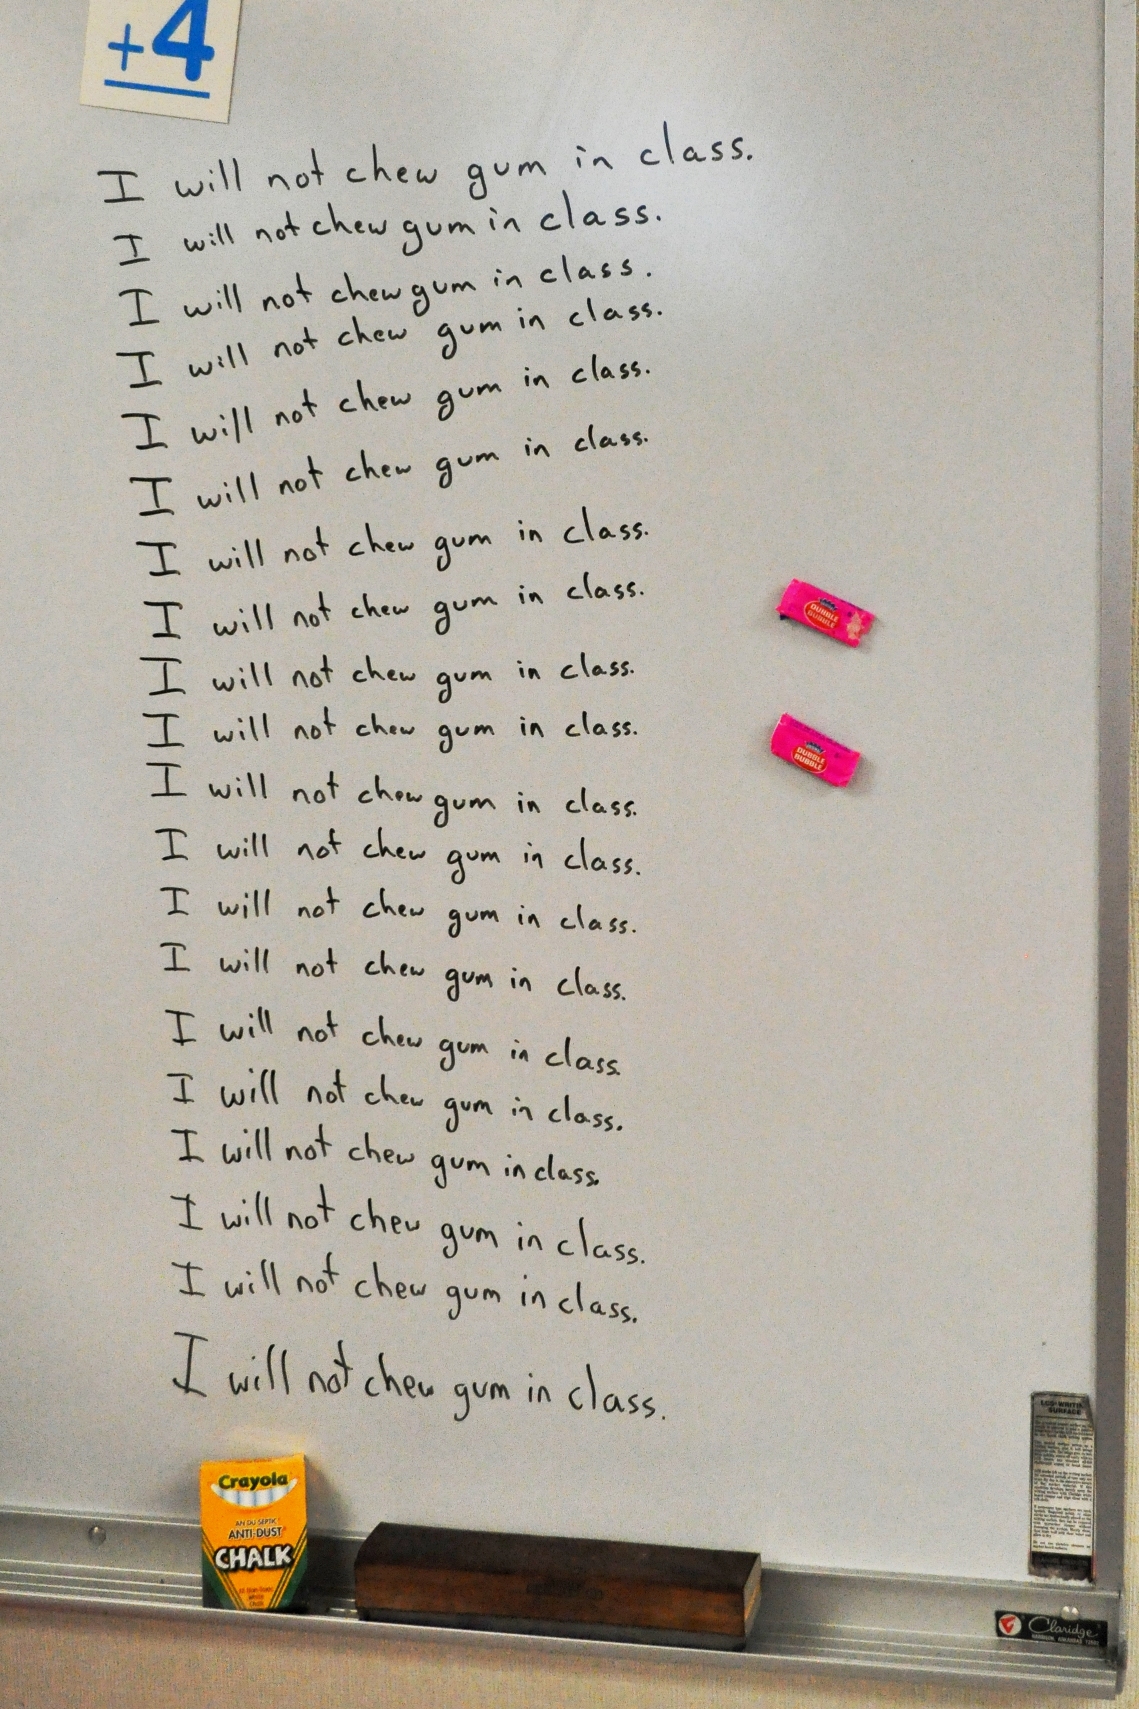 +4
I will not chew gum in class.
I will not chew gum in class.
I will not chew gum in class.
I will not chew gum in class.
I will not chew gum in class.
I will not chew gum in class.
I will not chew gum in class.
I will not chew gum in class.
DUBBLE
BUBBLE
I will not chew gum in class.
I will not chew gum in class.
DUBBLE
BUBBLE
I will not chew gum in class.
I will not chew gum in class.
I will not chew gum in class.
I will not chew gum in class.
I will not chew gum in class.
I will not chew gum in class.
I will not chew gum in class.
I will not chew gum in class.
I will not chew gum in class.
I will not chew gum in class.
SURFACE
Crayola
AN-DU-SEPTIC
ANTI-DUST
CHALK
Claridge